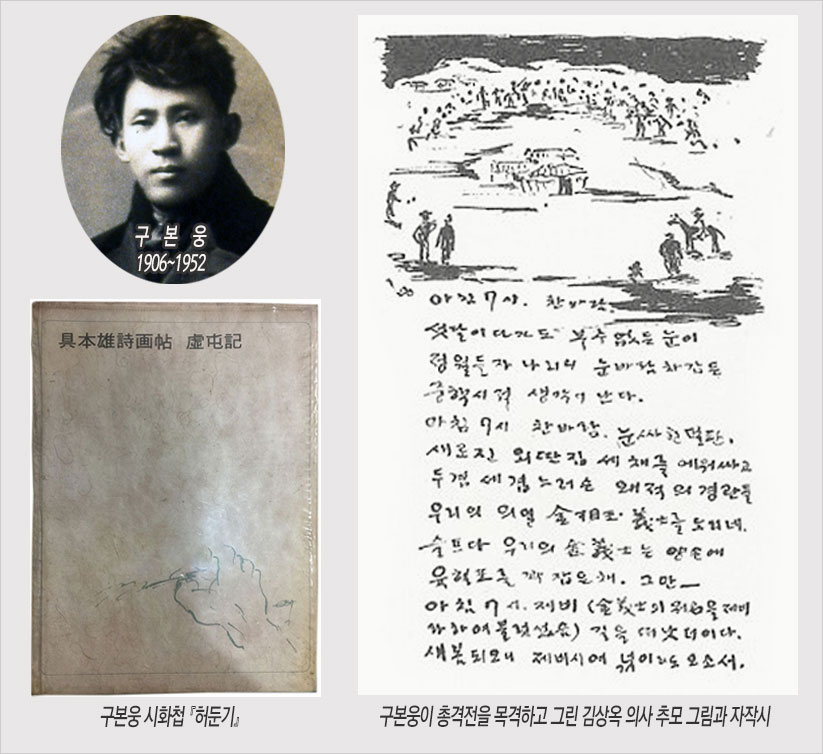 구 본 웅
1906~1952
具本雄詩画帖 虛屯記
구본웅 시화첩 『허둔기』
아침 7시. 찬바람.
섯달이 다 가도 볼 수 없든 눈이
정월 들자 나리니 눈바람 차갑든
중학시적 생각이 난다.
아침 7시 찬바람. 눈싸힌 벌판.
새로진 외딴집 세 채를 에워싸고
두겹 세겹 느러슨 왜적의 경관들
우리의 의열 金相玉 義士를 노리네.
슬프다 우리의 金義士는 양손에
육혈포를 꽉 잡은 채. 그만—
아침 7시. 제비 (金義士의 을 제비
라 하여 불렀섰음) 길을 떠났더이다.
새봄되오니 제비시여 넋이라도 오소서.
구본웅이 총격전을 목격하고 그린 김상옥 의사 추모 그림과 자작시